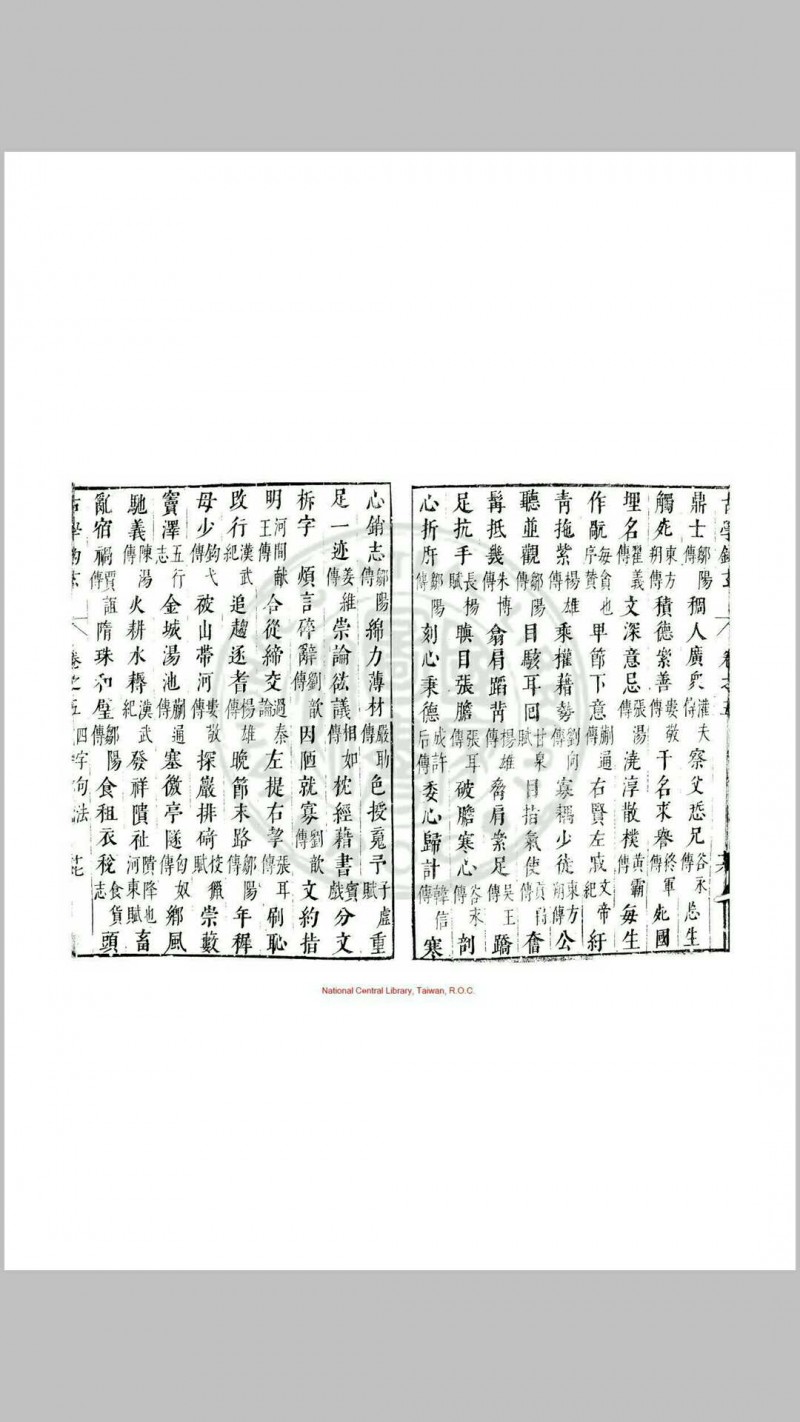 古學鈎玄 卷之五
鼎士鄒陽傳稠人廣衆灌夫傳察父悊兄谷永傳忘生
觸死東方朔傳積德絫善婁敬傳干名采譽終軍傳死國
埋名翟義傳文深意忌張湯傳澆淳散樸黃霸傳每生
作毎貪也序贊卑節下意蒯通傳右賢左戚文帝紀紆
青拖紫楊雄傳乘權藉勢劉向傳寡耦少徒東方朔傳公
聽並觀鄒陽傳目駭耳回甘泉賦目指氣使貢禹傳奮
髯抵几朱博傳翕肩蹈背楊雄傳脅肩絫足吳王傳蹻
足抗手長楊賦瞋目張膽張耳傳破膽寒心谷永傳剖
心折肝鄒陽傳刻心秉德成許后傳委心歸計韓信傳寒
心銷志鄒陽傳綿力薄材嚴助傳色授䰟予子虛賦重
足一迹姜維傳崇論谹議相如傳枕經藉書賓戲分文
析字 煩言碎辭劉歆傳因陋就寡劉歆傳文約指
明河間献王傳合從締交過秦論左提右挈張耳傳刷恥
改行漢武紀追趨逐耆楊雄傳晚節末路鄒陽傳年穉
母少鉤弋傳被山帶河婁敬傳探巖排碕校獵賦崇藪
竇澤五行志金城湯池蒯通傳塞徼亭隧匈奴傳鄉風
馳義陳湯傳火耕水耨漢武紀發祥隤祉隤降也河東賦畜
亂宿禍賈誼傳隋珠和璧鄒陽傳食租衣稅食貨志頭
古學鈎玄 卷之五 四字句法
National Central Library, Taiwan, R.O.C.